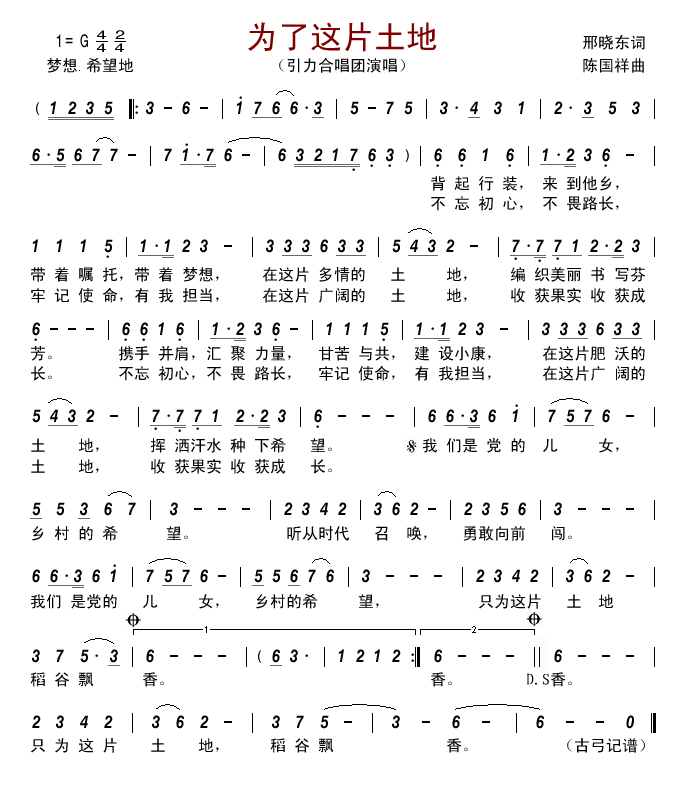 为了这片土地
1= G 4/4 2/4
邢晓东词
梦想.希望地
（引力合唱团演唱）
陈国祥曲
( 1 2 3 5 ‖: 3 - 6 - | 1 7 6 6·3 | 5 - 7 5 | 3· 4 3 1 | 2· 3 5 3 |
6·5 6 7 7 - | 7 1·7 6 - | 6 3 2 1 7 6 3 ) | 6 6 1 6 | 1·2 3 6 - |
背 起 行 装， 来 到他乡，
不 忘 初 心， 不 畏路长，
1 1 1 5 | 1·1 2 3 - | 3 3 3 6 3 3 | 5 4 3 2 - | 7·7 7 1 2·2 3 |
带 着 嘱 托，带 着 梦想， 在这片 多情的 土 地， 编 织美丽 书 写芬
牢 记 使 命，有 我 担当， 在这片 广阔的 土 地， 收 获果实 收 获成
6 - - - | 6 6 1 6 | 1·2 3 6 - | 1 1 1 5 | 1·1 2 3 - | 3 3 3 6 3 3 |
芳。 携手 并肩，汇 聚 力量， 甘苦 与共，建 设小康， 在这片肥 沃的
长。 不忘 初心，不 畏 路长， 牢记 使命，有 我担当， 在这片广 阔的
5 4 3 2 - | 7·7 7 1 2·2 3 | 6 - - - | 6 6·3 6 1 | 7 5 7 6 - |
土 地， 挥 洒汗水 种 下希 望。 𝄋我 们是 党 的 儿 女，
土 地， 收 获果实 收 获成 长。
5 5 3 6 7 | 3 - - - | 2 3 4 2 | 3 6 2 - | 2 3 5 6 | 3 - - - |
乡 村 的 希 望。 听从时代 召 唤， 勇敢向前 闯。
6 6·3 6 1 | 7 5 7 6 - | 5 5 6 7 6 | 3 - - - | 2 3 4 2 | 3 6 2 - |
我们 是党的 儿 女， 乡村的希 望， 只为这片 土 地
1 2
3 7 5·3 | 6 - - - | ( 6 3· | 1 2 1 2 :‖ 6 - - - ‖ 6 - - - |
稻 谷 飘 香。 香。 D.S香。
2 3 4 2 | 3 6 2 - | 3 7 5 - | 3 - 6 - | 6 - - 0 ‖
只 为 这 片 土 地， 稻 谷 飘 香。 （古弓记谱）